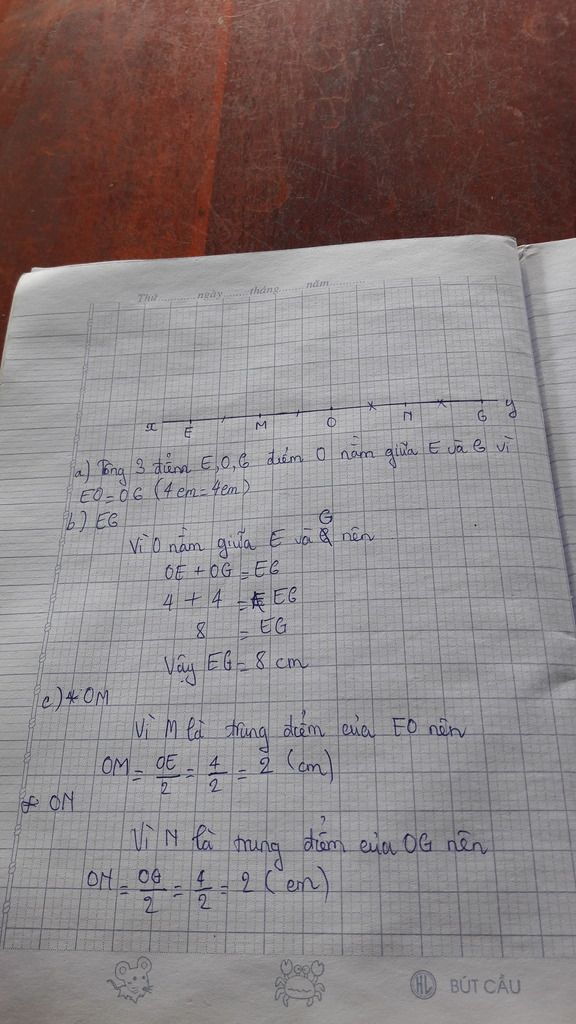 Thứ ............ ngày ........ tháng ........ năm ............
x E M O N G y
a) Tong 3 điểm E,O,G điểm O nằm giữa E và G vì
EO = OG (4cm = 4cm)
b) EG
Vì O nằm giữa E và G nên
OE + OG = EG
4 + 4 = EG
8 = EG
Vậy EG = 8 cm
c) * OM
Vì M là trung điểm của EO nên
OM = OE/2 = 4/2 = 2 (cm)
* ON
Vì N là trung điểm của OG nên
ON = OG/2 = 4/2 = 2 (cm)
HL BÚT CẦU